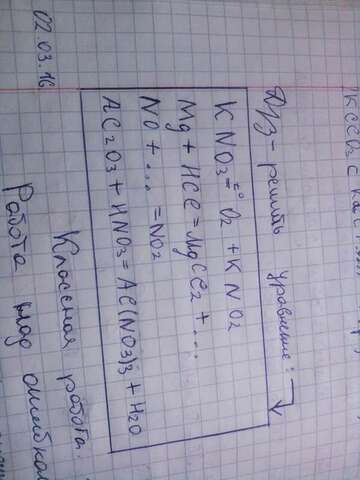 Д/З - решить уравнение:
KNO3 =t° O2 + KNO2
Mg + HCl = MgCl2 + ...
NO + ... = NO2
Al2O3 + HNO3 = Al(NO3)3 + H2O
02.03.16
Классная работа.
Работа над ошибкам